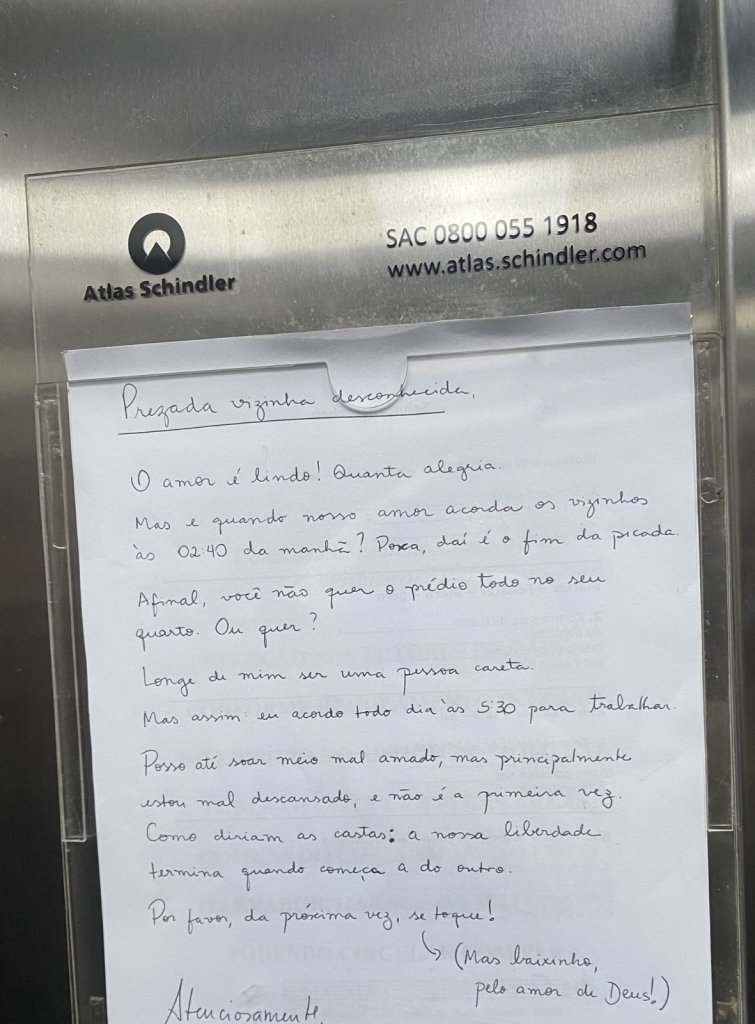 Atlas Schindler
SAC 0800 055 1918
www.atlas.schindler.com
Prezada vizinha desconhecida,
O amor é lindo! Quanta alegria.
Mas e quando nosso amor acorda os vizinhos
às 02:40 da manhã? Poxa, daí é o fim da picada.
Afinal, você não quer o prédio todo no seu
quarto. Ou quer?
Longe de mim ser uma pessoa careta.
Mas assim: eu acordo todo dia às 5:30 para trabalhar.
Posso até soar meio mal amado, mas principalmente
estou mal descansado, e não é a primeira vez.
Como diriam as castas: a nossa liberdade
termina quando começa a do outro.
Por favor, da próxima vez, se toque!
(Mas baixinho,
pelo amor de Deus!)
Atenciosamente,